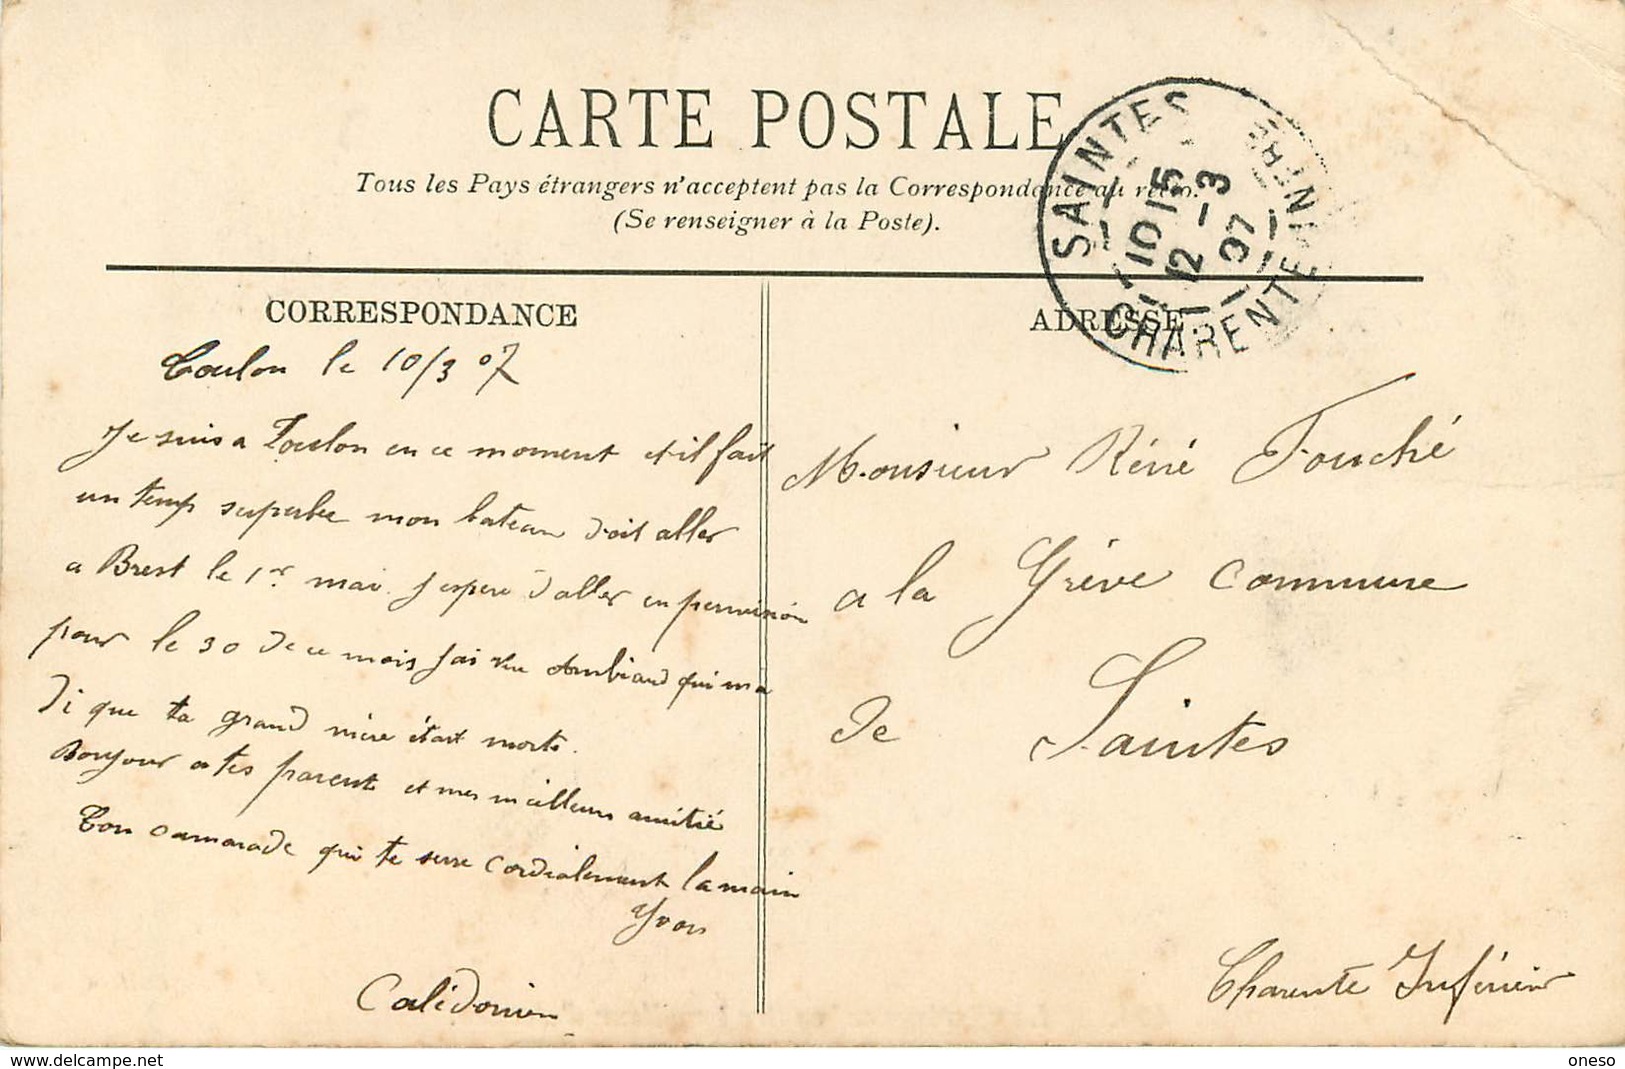 CARTE POSTALE
Tous les Pays étrangers n'acceptent pas la Correspondance au recto.
(Se renseigner à la Poste).
SAINTES
10 15
12 -3
07
CHARENTE INFRE
CORRESPONDANCE
ADRESSE
Toulon le 10/3 07
Je suis a Toulon en ce moment et il fait
un temps superbe mon bateau doit aller
a Brest le 1er mai j'espere d'aller en permission
pour le 30 de ce mois j'ai vu Ambiaud qui ma
di que ta grand mère était morte.
Bonjour a tes parents et mes meilleurs amitié
Ton camarade qui te serre cordialement la main
Yvon
Calédonien
Monsieur Réné Fouché
a la Grève Commune
de Saintes
Charente Inférieur
www.delcampe.net
oneso